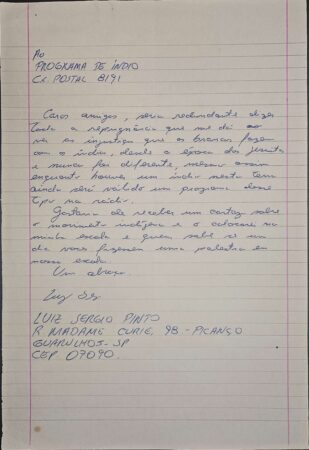 Ao
PROGRAMA DE ÍNDIO
CX. POSTAL 8191
Caros amigos, seria redundante dizer
toda a repugnância que me dá ao
ver as injustiças que os brancos fazem
com o índio, desde a época dos jesuítas
e nunca foi diferente, mesmo assim
enquanto houver um índio nesta terra
ainda será válido um programa desse
tipo na rádio.
Gostaria de receber um cartaz sobre
o movimento indígena e o colocarei na
minha escola e quem sabe se um
dia vocês fizessem uma palestra em
nossa escola.
Um abraço
LUIZ SERGIO PINTO
R MADAME CURIE, 98 - PICANÇO
GUARULHOS - SP
CEP 07090.